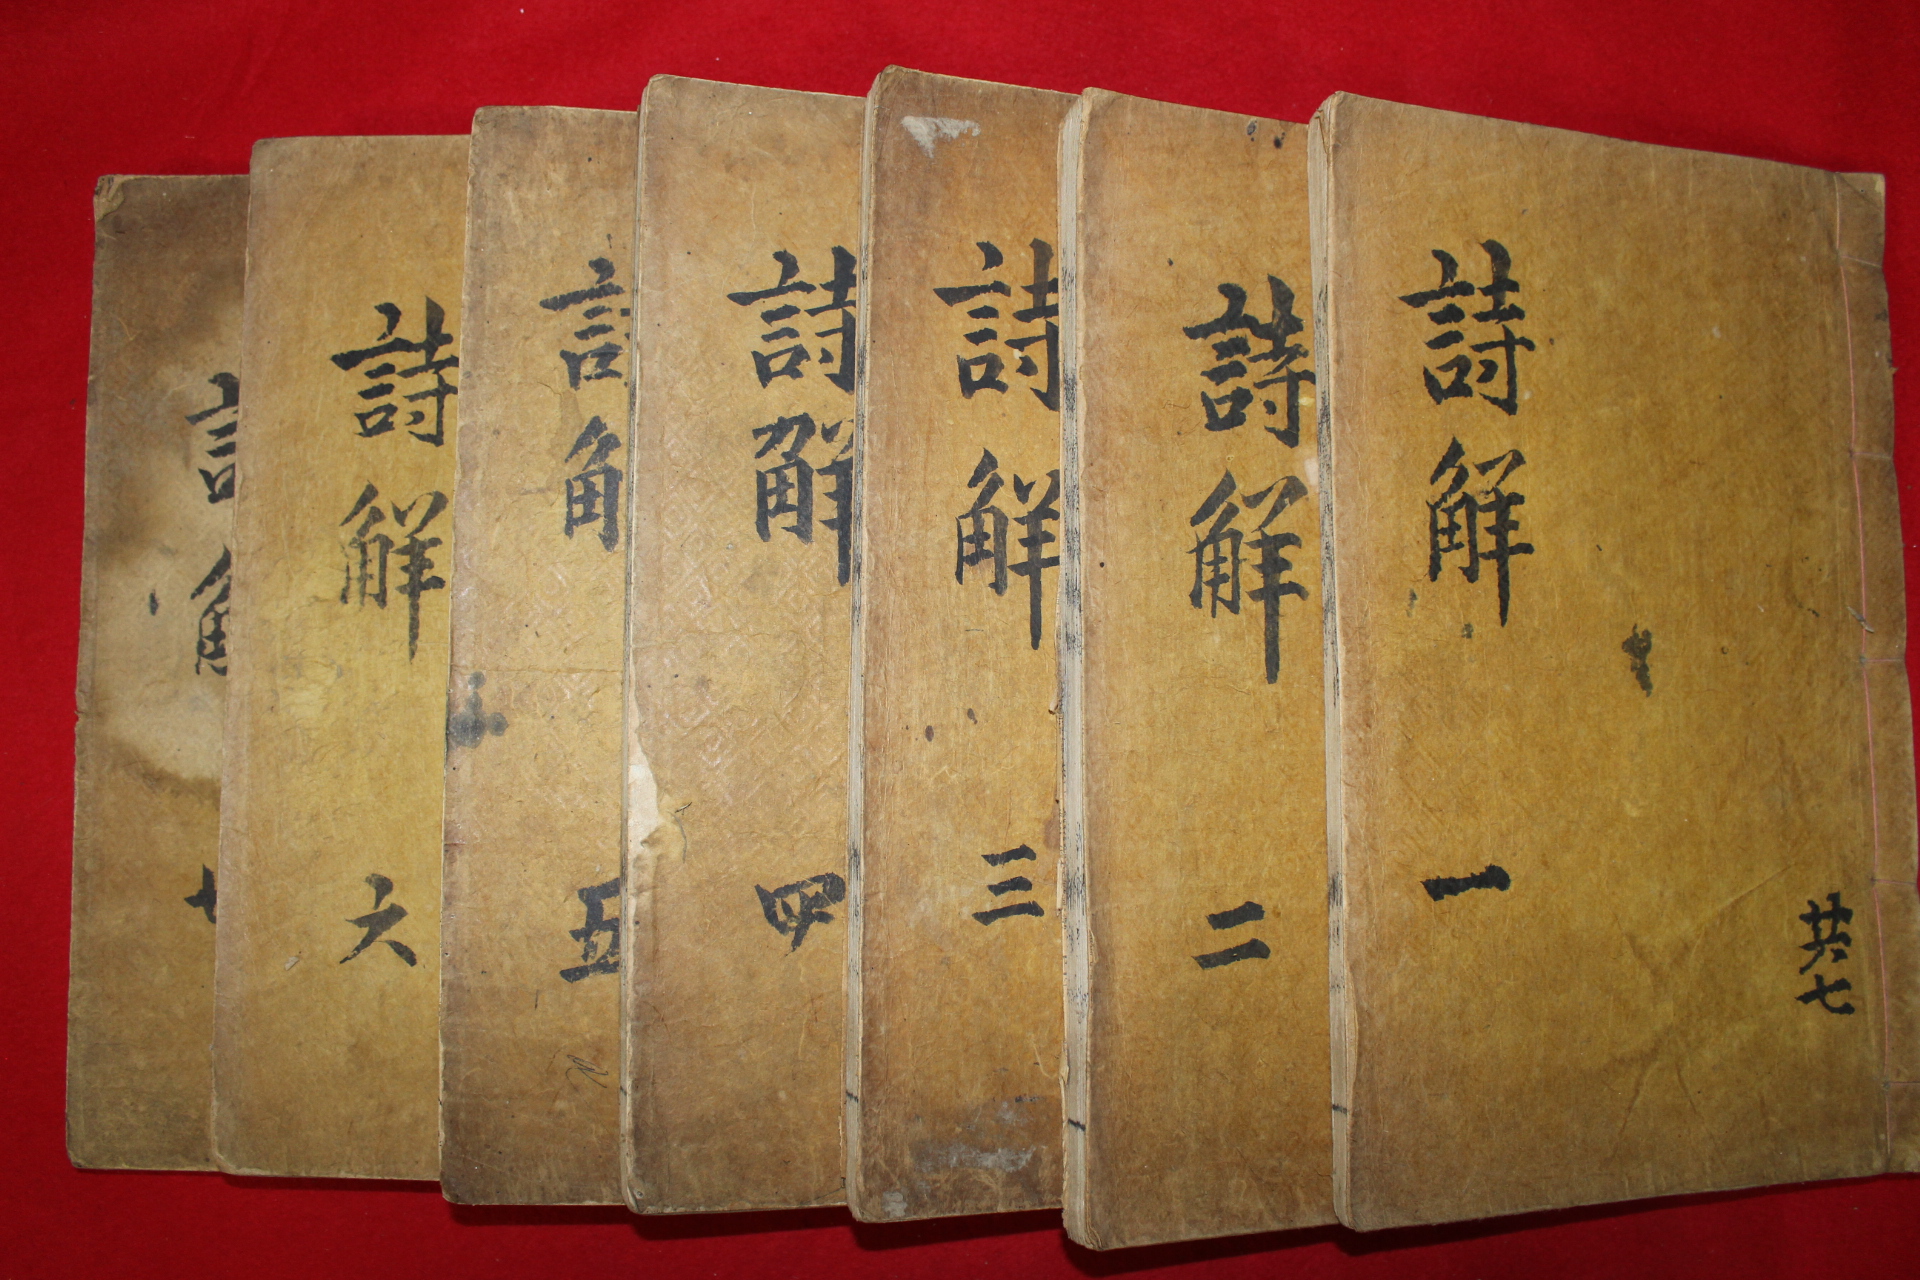 詩解
一
共七
詩解
二
詩解
三
詩解
四
詩解
五
詩解
六
詩解
七